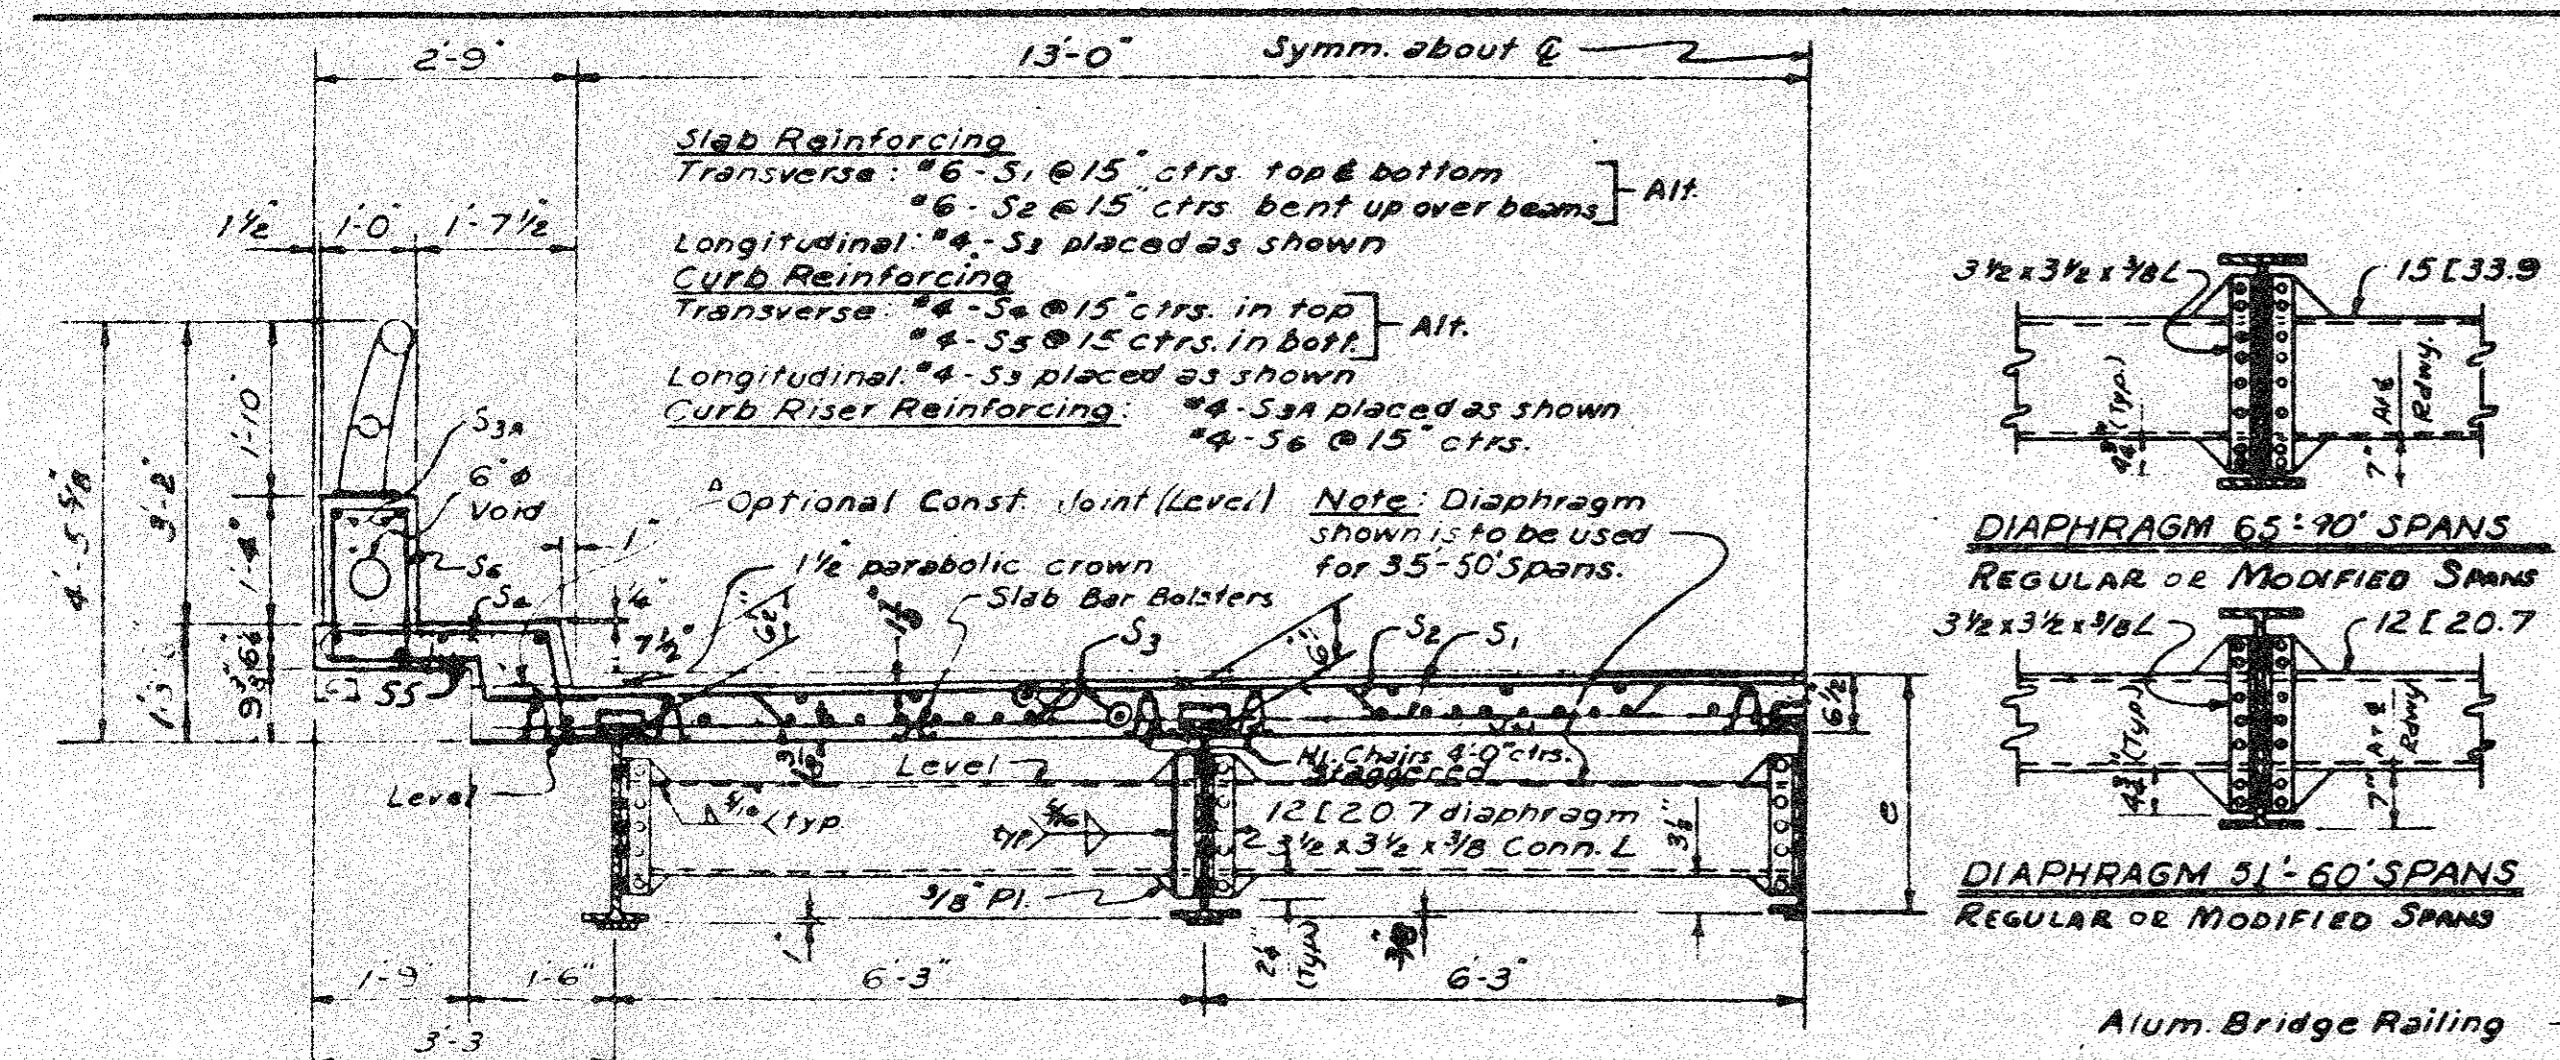 2'-9"
13'-0"
Symm. about ℄
Slab Reinforcing
Transverse: #6-S1 @ 15" ctrs. top & bottom
#6-S2 @ 15" ctrs bent up over beams
Alt.
Longitudinal: #4-S3 placed as shown
Curb Reinforcing
Transverse: #4-S4 @ 15" ctrs. in top
#4-S5 @ 15 ctrs. in bott.
Alt.
Longitudinal: #4-S3 placed as shown
Curb Riser Reinforcing: #4-S3A placed as shown
#4-S6 @ 15" ctrs.
1½"
1'-0"
1'-7½"
4'-5 5/8"
3'-2"
1'-10"
1'-4"
S3A
6"ø
Void
S6
S4
Optional Const. Joint (Level)
1"
Note: Diaphragm
shown is to be used
for 35'-50' Spans.
1½" parabolic crown
Slab Bar Bolsters
¼"
7½"
6½"
S3
S2
S1
6½"
1'-3"
S5
6½
e
Level
Level
Hi. Chairs 4'-0" ctrs.
Staggered
5/16 typ.
typ 5/16
12 [ 20.7 diaphragm
2-3½ x 3½ x 3/8 Conn. L
3/8" Pl.
1"
2¼" (Typ.)
1'-9"
1'-6"
6'-3"
6'-3"
3'-3
3½ x 3½ x 3/8 L
15 [ 33.9
4¾" (Typ.)
7" At ℄
Rdwy.
DIAPHRAGM 65'-90' SPANS
REGULAR OR MODIFIED SPANS
3½ x 3½ x 3/8 L
12 [ 20.7
4¾" (Typ.)
7" At ℄
Rdwy
DIAPHRAGM 51'-60' SPANS
REGULAR OR MODIFIED SPANS
Alum. Bridge Railing